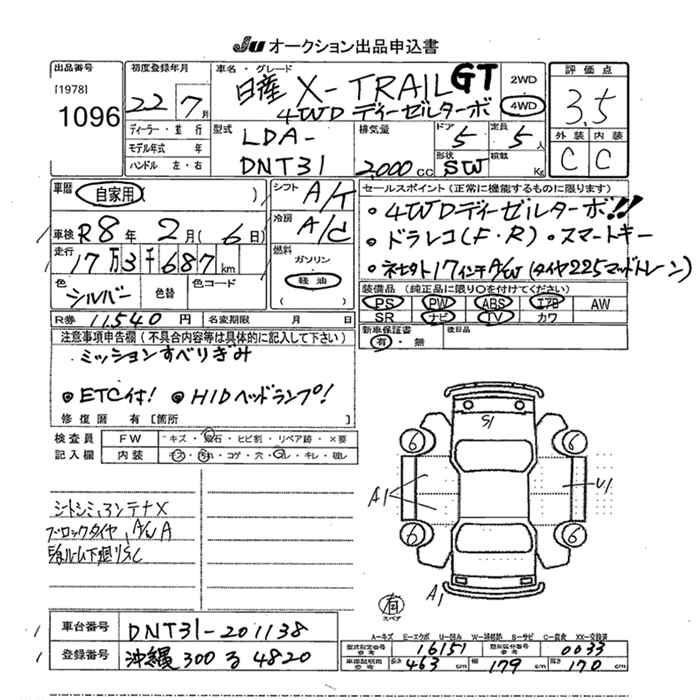 JU オークション出品申込書
出品番号
[1978]
1096
初度登録年月
22 / 7月
ディーラー・並行
モデル年式 年
ハンドル 左・右
車名・グレード
日産 X-TRAIL GT
4WDディーゼルターボ
2WD
4WD
評価点
3.5
外装 内装
C C
型式
LDA-
DNT31
排気量
2000 cc
ドア
5
形状
SW
定員
5 人
積載
Kg
車歴
自家用 ( )
車検 R8年 2月 (6日)
走行
17万3千687 km
色 シルバー 色替 色コード
シフト A/T
冷房 A/C
燃料
ガソリン
軽油
( )
セールスポイント (正常に機能するものに限ります)
・4WDディーゼルターボ!!
・ドラレコ(F・R) ・スマートキー
17インチA/W (タイヤ225マッドトレーン)
装備品 (純正品に限り○を付けてください)
PS PW ABS エアB AW
SR ナビ TV カワ
R券 11.540 円 名変期限 月 日
新車保証書
有・無
後日品
注意事項申告欄 (不具合内容等は具体的に記入して下さい)
ミッションすべりぎみ
●ETC付! ●HIDヘッドランプ!
修復歴 有 [箇所
検査員 FW キズ・飛石・ヒビ割・リペア跡・×要
記入欄 内装 キズ・汚れ・コゲ・穴・スレ・キレ・破レ
ブロックタイヤ、A/W A
S1
6 6
A1 U1
6 6
A1
有
スペア
車台番号 DNT31-201138
登録番号 沖縄 300 る 4820
A―キズ E―エクボ U―凹み W―補修跡 S―サビ C―腐食 XX―交換済
型式指定番号 参考 16151 類別区分番号 参考 0033
車検証明用 参考 長さ 463 cm 幅 179 cm 高さ 170 cm